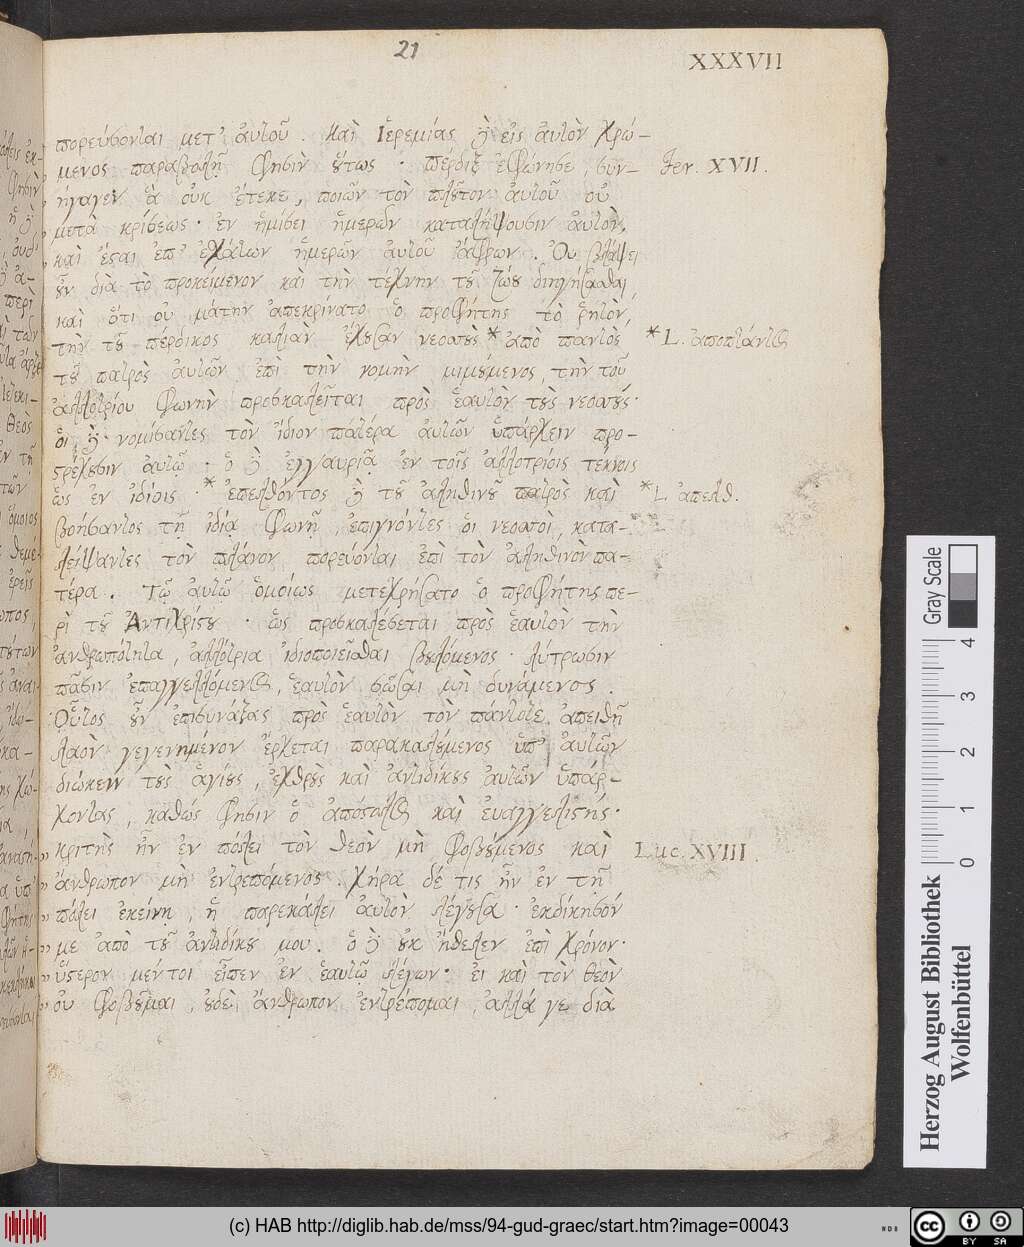 21
XXXVII
πορεύσονται μετ' αὐτοῦ. Καὶ Ἱερεμίας δὲ εἰς αὐτὸν χρώ-
μενος παραβολῇ φησὶν οὕτως· πέρδιξ ἐφώνησε, συν-
Jer. XVII.
ήγαγεν ἃ οὐκ ἔτεκε, ποιῶν τὸν πλοῦτον αὐτοῦ οὐ
μετὰ κρίσεως· ἐν ἡμίσει ἡμερῶν καταλήψουσιν αὐτὸν,
καὶ ἔσται ἐπ' ἐσχάτων ἡμερῶν αὐτοῦ ἄφρων. Οὐ βλάψει
οὖν διὰ τὸ προκείμενον καὶ τὴν τέχνην τοῦ ζώου διηγήσασθαι
καὶ ὅτι οὐ μάτην ἀπεκρίνατο ὁ προφήτης τὸ ῥητόν,
τὴν τοῦ πέρδικος καλιὰν ἔχουσαν νεοσσοὺς * ἀπὸ παντὸς
* L. ἀποπτάντος
τοῦ πατρὸς αὐτῶν ἐπὶ τὴν νομὴν μιμούμενος, τὴν τοῦ
ἀλλοτρίου φωνὴν προσκαλεῖται πρὸς ἑαυτὸν τοὺς νεοσσούς·
οἱ δὲ νομίσαντες τὸν ἴδιον πατέρα αὐτῶν ὑπάρχειν προ-
στρέχουσιν αὐτῷ· ὁ δὲ ἐγγαυριᾷ ἐν τοῖς ἀλλοτρίοις τέκνοις
ὡς ἐν ἰδίοις. * ἐπελθόντος δὲ τοῦ ἀληθινοῦ πατρὸς καὶ
* L. ἀπελθ.
βοήσαντος τῇ ἰδίᾳ φωνῇ, ἐπιγνόντες οἱ νεοσσοὶ, κατα-
λείψαντες τὸν πλάνον πορεύονται ἐπὶ τὸν ἀληθινὸν πα-
τέρα. Τῷ αὐτῷ ὁμοίως μετεχρήσατο ὁ προφήτης πε-
ρὶ τοῦ Ἀντιχρίστου· ὡς προσκαλέσεται πρὸς ἑαυτὸν τὴν
ἀνθρωπότητα, ἀλλότρια ἰδιοποιεῖσθαι βουλόμενος· λύτρωσιν
πᾶσιν ἐπαγγελλόμενος, ἑαυτὸν σῶσαι μὴ δυνάμενος.
Οὗτος οὖν ἐπισυνάξας πρὸς ἑαυτὸν τὸν πάντοτε ἀπειθῆ
λαὸν γεγενημένον ἔρχεται παρακαλούμενος ὑπ' αὐτῶν
διώκειν τοὺς ἁγίους, ἐχθροὺς καὶ ἀντιδίκους αὐτῶν ὑπάρ-
χοντας, καθώς φησιν ὁ ἀπόστολος καὶ εὐαγγελιστής·
κριτὴς ἦν ἐν πόλει τὸν θεὸν μὴ φοβούμενος καὶ
Luc. XVIII.
" ἄνθρωπον μὴ ἐντρεπόμενος. χήρα δέ τις ἦν ἐν τῇ
" πόλει ἐκείνῃ, ἣ παρεκάλει αὐτὸν λέγουσα· ἐκδίκησόν
" με ἀπὸ τοῦ ἀντιδίκου μου. ὁ δὲ οὐκ ἤθελεν ἐπὶ χρόνον·
" ὕστερον μέντοι εἶπεν ἐν ἑαυτῷ λέγων· εἰ καὶ τὸν θεὸν
" οὐ φοβοῦμαι, οὐδὲ ἄνθρωπον ἐντρέπομαι, ἀλλά γε διὰ
Herzog August Bibliothek
Wolfenbüttel
Gray Scale
0 1 2 3 4
(c) HAB http://diglib.hab.de/mss/94-gud-graec/start.htm?image=00043
cc BY SA